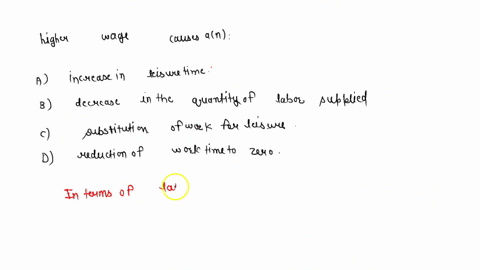 higher wage causes a(n):
A) increase in leisure time.
B) decrease in the quantity of labor supplied
C) substitution of work for leisure.
D) reduction of work time to zero.
In terms of la